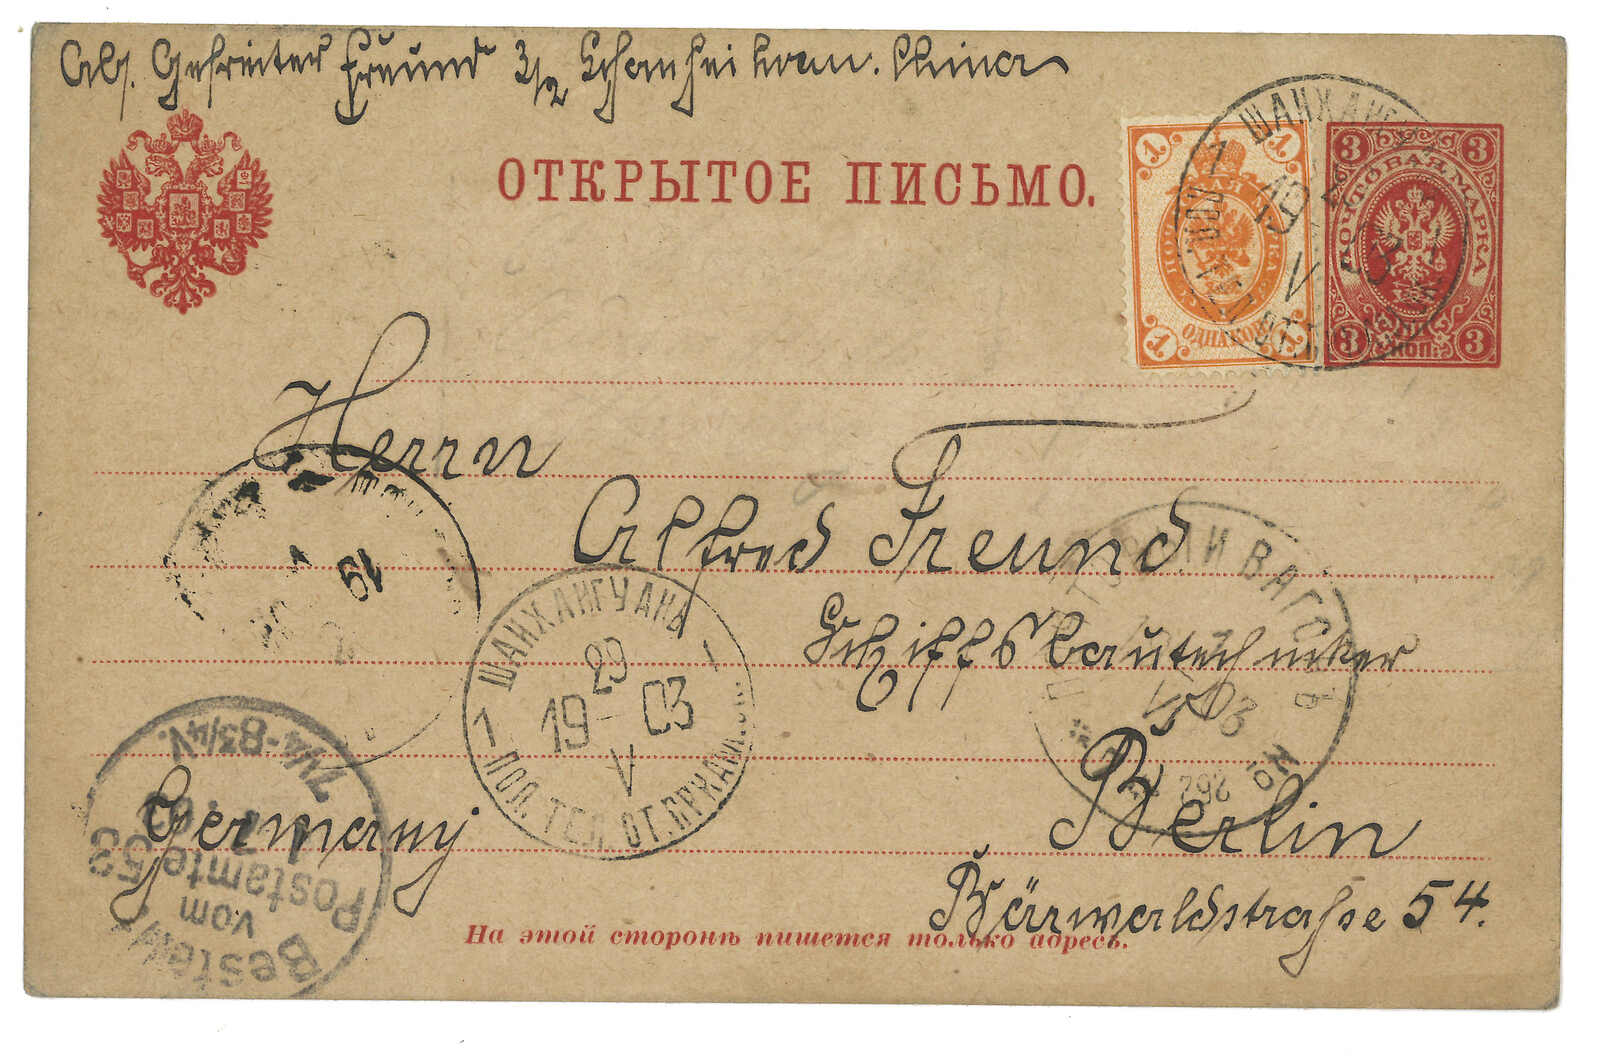 Abs. Gefreiter Freund 3/2 Schanheikwan. China
ОТКРЫТОЕ ПИСЬМО.
1 1
ОДНА КОП.
1 1
3 3
ПОЧТОВАЯ МАРКА
3 КОП. 3
19 V 03
Herrn
Alfred Freund
Schiffsbautechniker
Berlin
Bärwaldstraße 54.
Germany
ШАНХАЙГУАНЬ
29
19 03
V
1 ПОЛ. ТЕЛ. ОТ.
19
ВАГОНЪ
03
262
Bestellt
vom
Postamte 53
7 1/4-8 3/4 V.
На этой сторонѣ пишется только адресъ.